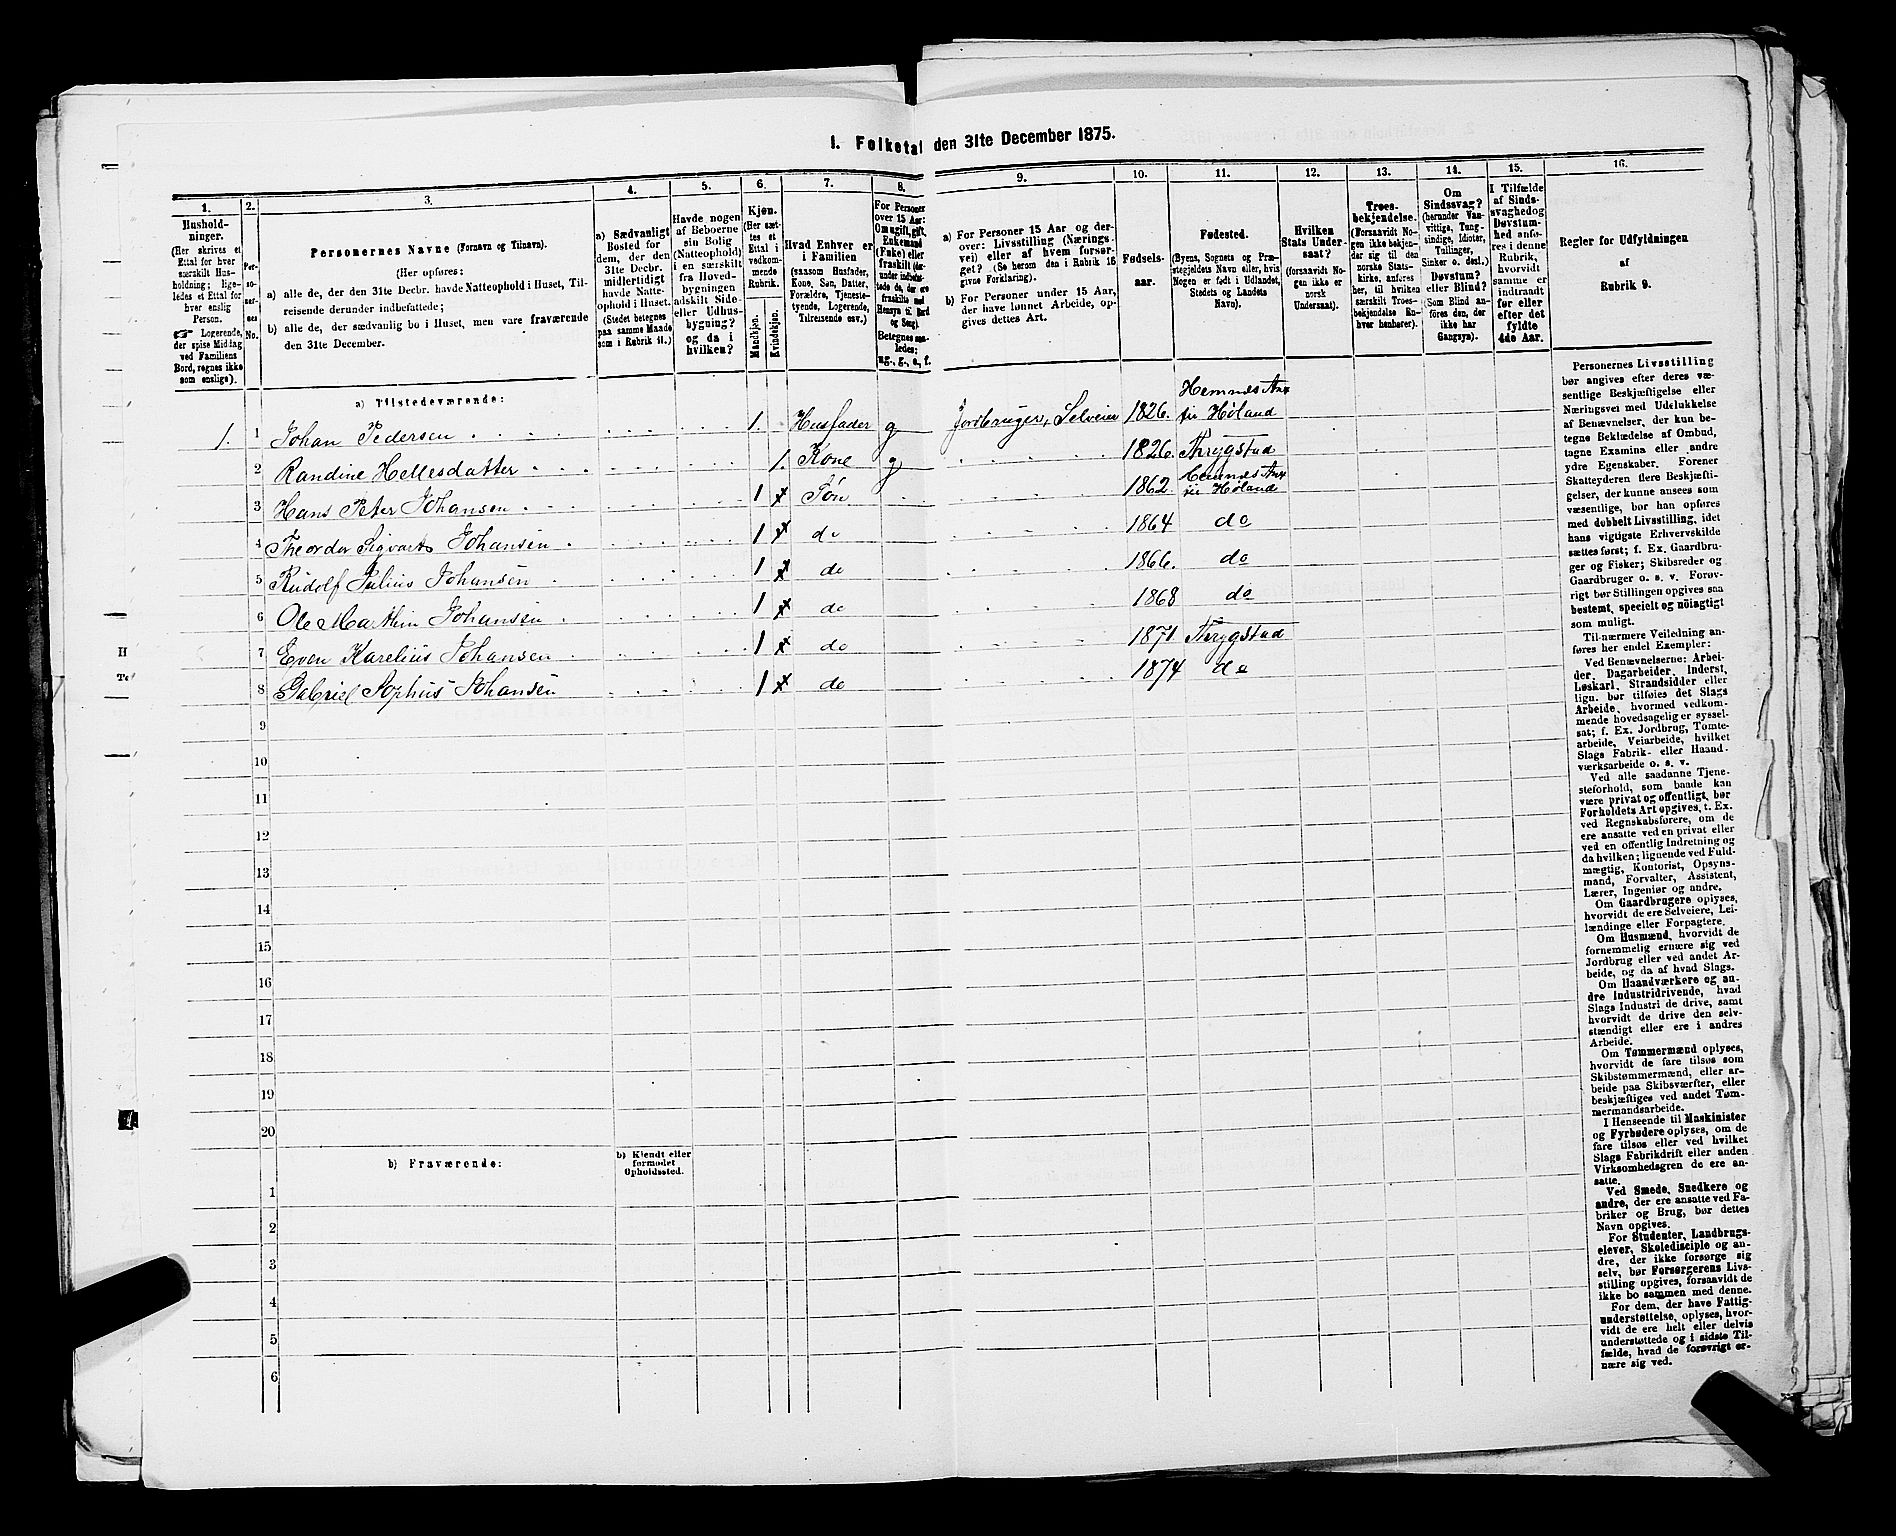 I. Folketal den 31te December 1875.
1. 2. 3. 4. 5. 6. 7. 8. 9. 10. 11. 12. 13. 14. 15. 16.
Hushold-
ninger.
(Her skrives et
Ettal for hver
særskilt Hus-
holdning; lige-
ledes et Ettal for
hver enslig
Person.
Logerende,
der spise Middag
ved Familiens
Bord, regnes ikke
som enslige).
Per-
so-
ner-
nes
No.
Personernes Navne (Fornavn og Tilnavn).
(Her opføres:
a) alle de, der den 31te Decbr. havde Natteophold i Huset, Til-
reisende derunder indbefattede;
b) alle de, der sædvanlig bo i Huset, men vare fraværende
den 31te December.
a) Sædvanligt
Bosted for
dem, der den
31te Decbr.
midlertidigt
havde Natte-
ophold i Huset.
(Stedet betegnes
paa samme Maade
som i Rubrik 11.)
Havde nogen
af Beboerne
sin Bolig
(Natteophold)
i en særskilt
fra Hoved-
bygningen
adskilt Side-
eller Udhus-
bygning?
og da i
hvilken?
Kjøn.
(Her sæt-
tes et
Ettal i
vedkom-
mende
Rubrik.
Mandkjøn.
Kvindekjøn.
Hvad Enhver er
i Familien
(saasom Husfader,
Kone, Søn, Datter,
Forældre, Tjeneste-
tyende, Logerende,
Tilreisende osv.)
For Personer
over 15 Aar:
Om ugift, gift,
Enkemand
(Enke) eller
fraskilt
Betegnes saa-
ledes:
ug., g., e., f.
a) For Personer 15 Aar og der-
over: Livsstilling (Nærings-
vei) eller af hvem forsør-
get? (Se herom den i Rubrik 16
givne Forklaring).
b) For Personer under 15 Aar,
der have lønnet Arbeide, op-
gives dettes Art.
Fødsels-
aar.
Fødested.
(Byens, Sognets og Præ-
stegjeldets Navn eller, hvis
Nogen er født i Udlandet,
Stedets og Landets
Navn).
Hvilken
Stats Under-
saat?
(forsaavidt No-
gen ikke er
norsk
Undersaat).
Troes-
bekjendelse.
(Forsaavidt No-
gen ikke bekjen-
der sig til den
norske Stats-
kirke, anføres
her, til hvilken
særskilt Troes-
bekjendelse En-
hver henhører).
Om
Sindssvag?
(herunder Van-
vittige, Tung-
sindige, Idioter,
Tullinger,
Sinker o. desl.)
Døvstum?
eller Blind?
(Som Blind an-
føres den, der
ikke har
Gangsyn).
I Tilfælde
af Sinds-
svaghed og
Døvstum-
hed anfø-
res i denne
Rubrik,
hvorvidt
samme er
indtraadt
før eller
efter det
fyldte
4de Aar.
Regler for Udfyldningen
af
Rubrik 9.
a) Tilstedeværende:
1. 1 Johan Pedersen 1. Husfader g Jordbruger, Selveier 1826. Hemnes Anx
fir Høland
2 Randine Hellesdatter 1. Kone g 1826. Thrygstad
3 Hans Peter Johansen 1 Søn 1862. Hemnes Anx
fir Høland
4 Theordor Sigvarts Johansen 1 do 1864 do
5 Rudolf Julius Johansen 1 do 1866. do
6 Ole Marthin Johansen 1 do 1868 do
7 Even Karelius Johansen 1 do 1871 Thrygstad
8 Gabriel Sophus Johansen 1 do 1874 do
9
10
11
12
13
14
15
16
17
18
19
20
b) Fraværende:
b) Kjendt eller
formodet
Opholdssted.
1
2
3
4
5
6
Personernes Livsstilling
bør angives efter deres væ-
sentlige Beskjæftigelse eller
Næringsvei med Udelukkelse
af Benævnelser, der kun be-
tegne Beklædelse af Ombud,
tagne Examina eller andre
ydre Egenskaber. Forener
Skatteyderen flere Beskjæfti-
gelser, der kunne ansees som
væsentlige, bør han opføres
med dobbelt Livsstilling, idet
hans vigtigste Erhvervskilde
sættes først; f. Ex. Gaardbru-
ger og Fisker; Skibsreder og
Gaardbruger o. s. v. Forøv-
rigt bør Stillingen opgives saa
bestemt, specielt og nöiagtigt
som muligt.
Til nærmere Veiledning an-
føres her endel Exempler:
Ved Benævnelserne: Arbei-
der, Dagarbeider, Inderst,
Løskarl, Strandsidder eller
lign. bør tilføies det Slags
Arbeide, hvormed vedkom-
mende hovedsagelig er syssel-
sat; f. Ex. Jordbrug, Tømte-
arbeide, Veiarbeide, hvilket
Slags Fabrik- eller Haand-
værksarbeide o. s. v.
Ved alle saadanne Tjene-
steforhold, som baade kan
være privat og offentligt, bør
Forholdets Art opgives, t. Ex.
ved Regnskabsførere, om de
ere ansatte ved en privat eller
ved en offentlig Indretning og
da hvilken; lignende ved Fuld-
mægtig, Kontorist, Opsyns-
mand, Forvalter, Assistent,
Lærer, Ingeniør og andre.
Om Gaardbrugere oplyses,
hvorvidt de ere Selveiere, Lei-
lændinge eller Forpagtere.
Om Husmænd, hvorvidt de
fornemmelig ernære sig ved
Jordbrug eller ved andet Ar-
beide, og da af hvad Slags.
Om Haandværkere og an-
dre Industridrivende, hvad
Slags Industri de drive, samt
hvorvidt de drive den selv-
stændigt eller ere i andres
Arbeide.
Om Tømmermænd oplyses,
hvorvidt de fare tilsøs som
Skibstømmermænd, eller ar-
beide paa Skibsværfter, eller
beskjæftiges ved andet Tøm-
mermandsarbeide.
I Henseende til Maskinister
og Fyrbødere oplyses, om de
fare tilsøs eller ved hvilket
Slags Fabrikdrift eller anden
Virksomhedsgren de ere an-
satte.
Ved Smede, Snedkere og
andre, der ere ansatte ved Fa-
briker og Brug, bør dettes
Navn opgives.
For Studenter, Landbrugs-
elever, Skoledisciple og an-
dre, der ikke forsørge sig
selv, bør Forsørgerens Livs-
stilling opgives, forsaavidt de
ikke bo sammen med denne.
For dem, der have Fattig-
understøttelse, oplyses, hvor-
vidt de ere helt eller delvis
understøttede og i sidste Til-
fælde, hvad de forøvrigt er-
nære sig ved.